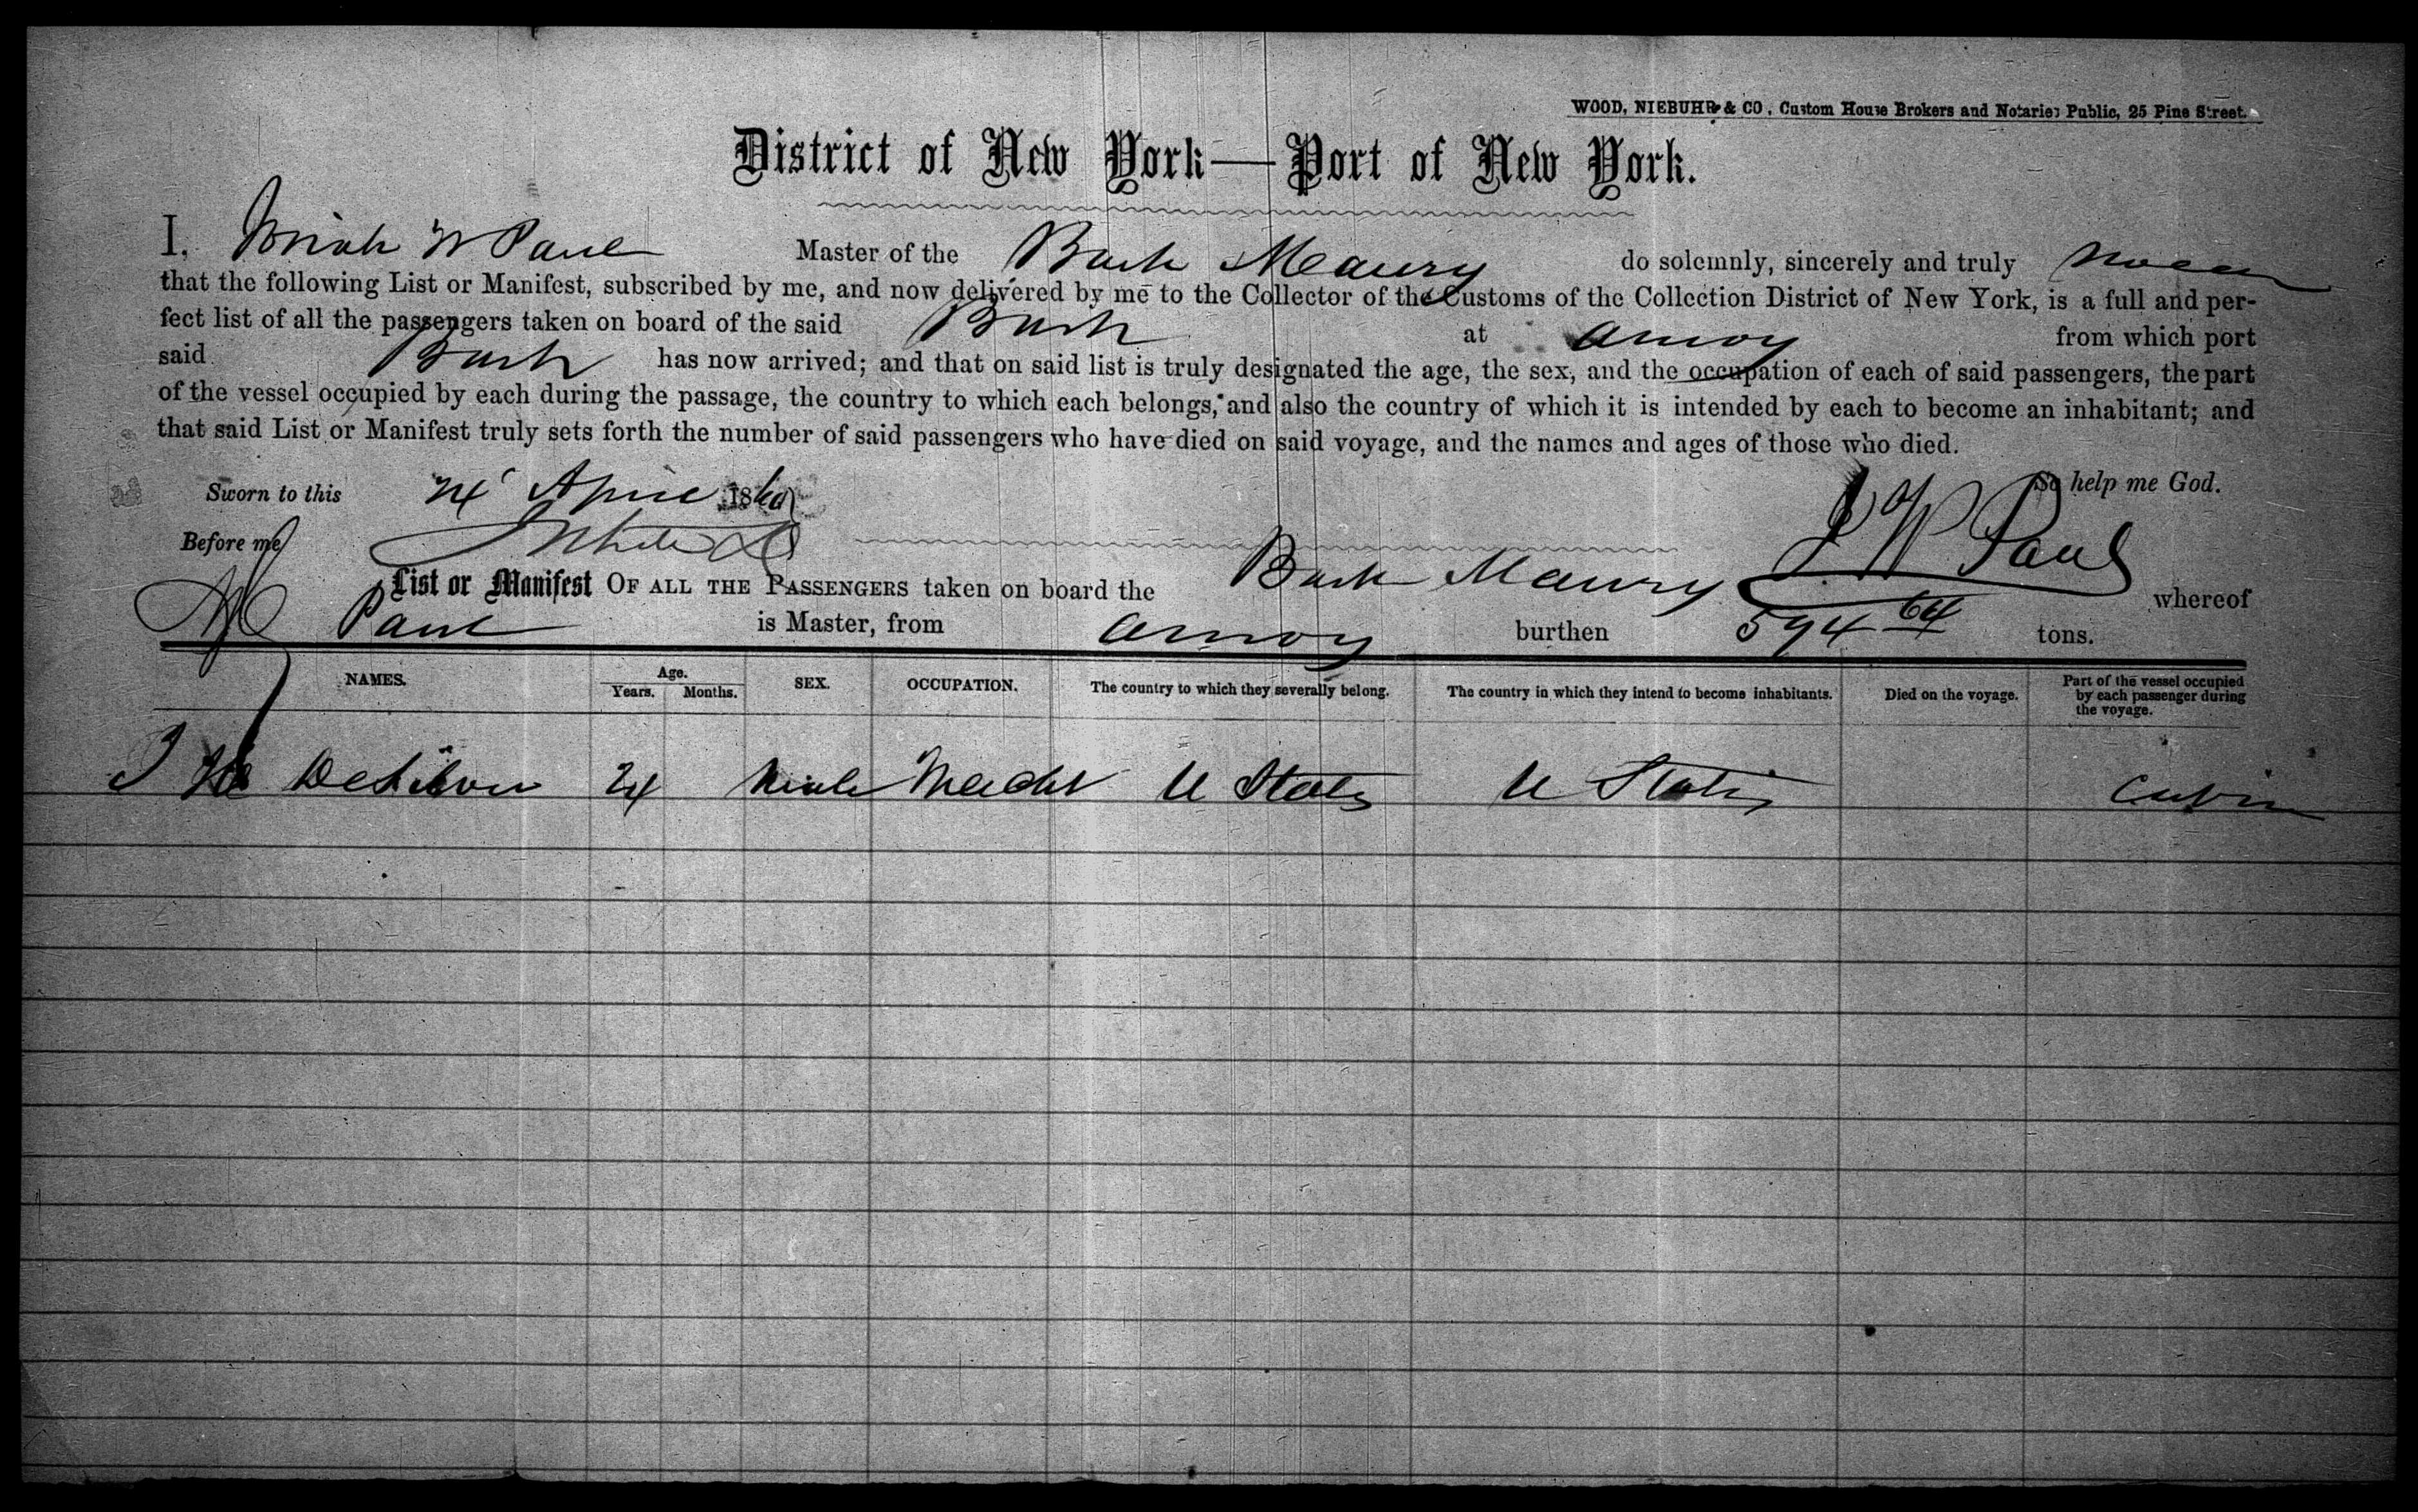 WOOD, NIEBUHR & CO, Custom House Brokers and Notaries Public, 25 Pine Street.
District of New York—Port of New York.
I, W Paul Master of the Bark Maury do solemnly, sincerely and truly swear
that the following List or Manifest, subscribed by me, and now delivered by me to the Collector of the Customs of the Collection District of New York, is a full and per-
fect list of all the passengers taken on board of the said Bark at Amoy from which port
said Bark has now arrived; and that on said list is truly designated the age, the sex, and the occupation of each of said passengers, the part
of the vessel occupied by each during the passage, the country to which each belongs, and also the country of which it is intended by each to become an inhabitant; and
that said List or Manifest truly sets forth the number of said passengers who have died on said voyage, and the names and ages of those who died.
Sworn to this 24 April 1860 So help me God.
Before me J W Paul
List or Manifest OF ALL THE PASSENGERS taken on board the Bark Maury whereof
Paul is Master, from Amoy burthen 594 64 tons.
NAMES. Age. Years. Months. SEX. OCCUPATION. The country to which they severally belong. The country in which they intend to become inhabitants. Died on the voyage. Part of the vessel occupied by each passenger during the voyage.
24 Male U States U States Cabin